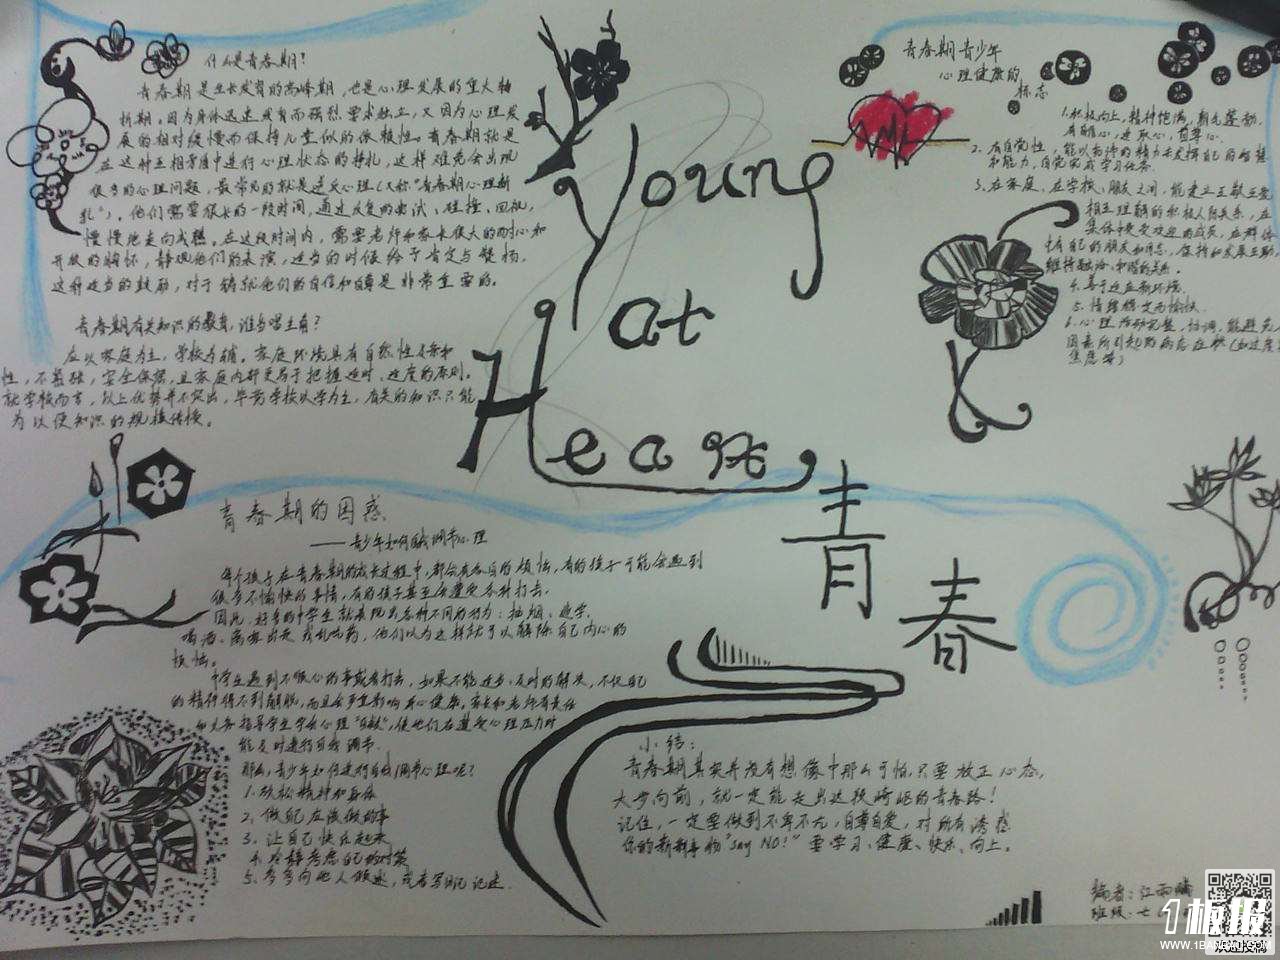 什么是青春期?
青春期是生长发育的高峰期,也是心理发展的重大转
折期。因为身体迅速发育而强烈要求独立,又因为心理发
展的相对缓慢而保持儿童似的依赖性。青春期就是
在这种互相矛盾中进行心理状态的挣扎,这样难免会出现
很多的心理问题,最常见的就是逆反心理(又称"青春期心理断
乳")。他们需要很长的一段时间,通过反复的尝试、碰撞、回视,
慢慢地走向成熟。在这段时间内,需要老师和家长很大的耐心和
开放的胸怀,静观他们的表演,适当的时候给于肯定与赞扬,
这种适当的鼓励,对于铸就他们的自信和自尊是非常重要的。
青春期有关知识的教育,谁当唱主角?
应以家庭为主,学校为辅。家庭环境具有自然性、亲和
性,不露骨,安全保密,且家庭内部更易于把握适时、适度的原则。
就学校而言,以上优势并不突出,毕竟学校以学为主,有关的知识只能
为以便知识的规模传授。
Young
at
Heart,
青春
青春期青少年
心理健康的
标志
1.积极向上,精神饱满,朝气蓬勃,
有自信心,进取心,自尊心.
2.有自觉性,能以充沛的精力去发挥自己的智慧
和能力,自觉完成学习任务.
3.在家庭、在学校、朋友之间,能建立互敬互爱
相互理解的积极人际关系,在
集体中是受欢迎的成员,在群体
中有自己的朋友和同志,保持和发展互助,
维持融洽、和谐的关系。
4.善于适应新环境.
5.情绪稳定而愉快.
6.心理活动完整、协调,能避免
因素所引起的病态症状(如过度
焦虑等)
青春期的困惑
——青少年如何自我调节心理
每个孩子在青春期的成长过程中,都会有各自的烦恼,有的孩子可能会遇到
很多不愉快的事情,有的孩子甚至会遭受各种打击。
因此,好多的中学生就表现出各种不同的行为:抽烟、逃学、
喝酒、离家出走或乱吃药,他们以为这样就可以解除自己内心的
烦恼。
中学生遇到不顺心的事或者打击,如果不能进步、及时的解决,不仅自己
的精神得不到解脱,而且会严重影响身心健康,家长和老师有责任
和义务指导学生学会心理"自救",使他们在遭受心理压力时
能及时进行自我调节.
那么,青少年如何进行自我调节心理呢?
1.放松精神和身体
2.做自己应该做的事
3.让自己快乐起来
4.冷静考虑自己的对策
5.多多向他人倾述,或者写日记记述.
小结:
青春期其实并没有想像中那么可怕,只要放正心态,
大步向前,就一定能走出这段崎岖的青春路!
记住,一定要做到不卑不亢,自尊自爱,对所有诱惑
你的新鲜事物"Say NO!"要学习、健康、快乐、向上。
编者:江雨
班级:七
1板报
WWW.1BANBAO.COM
欢迎投稿